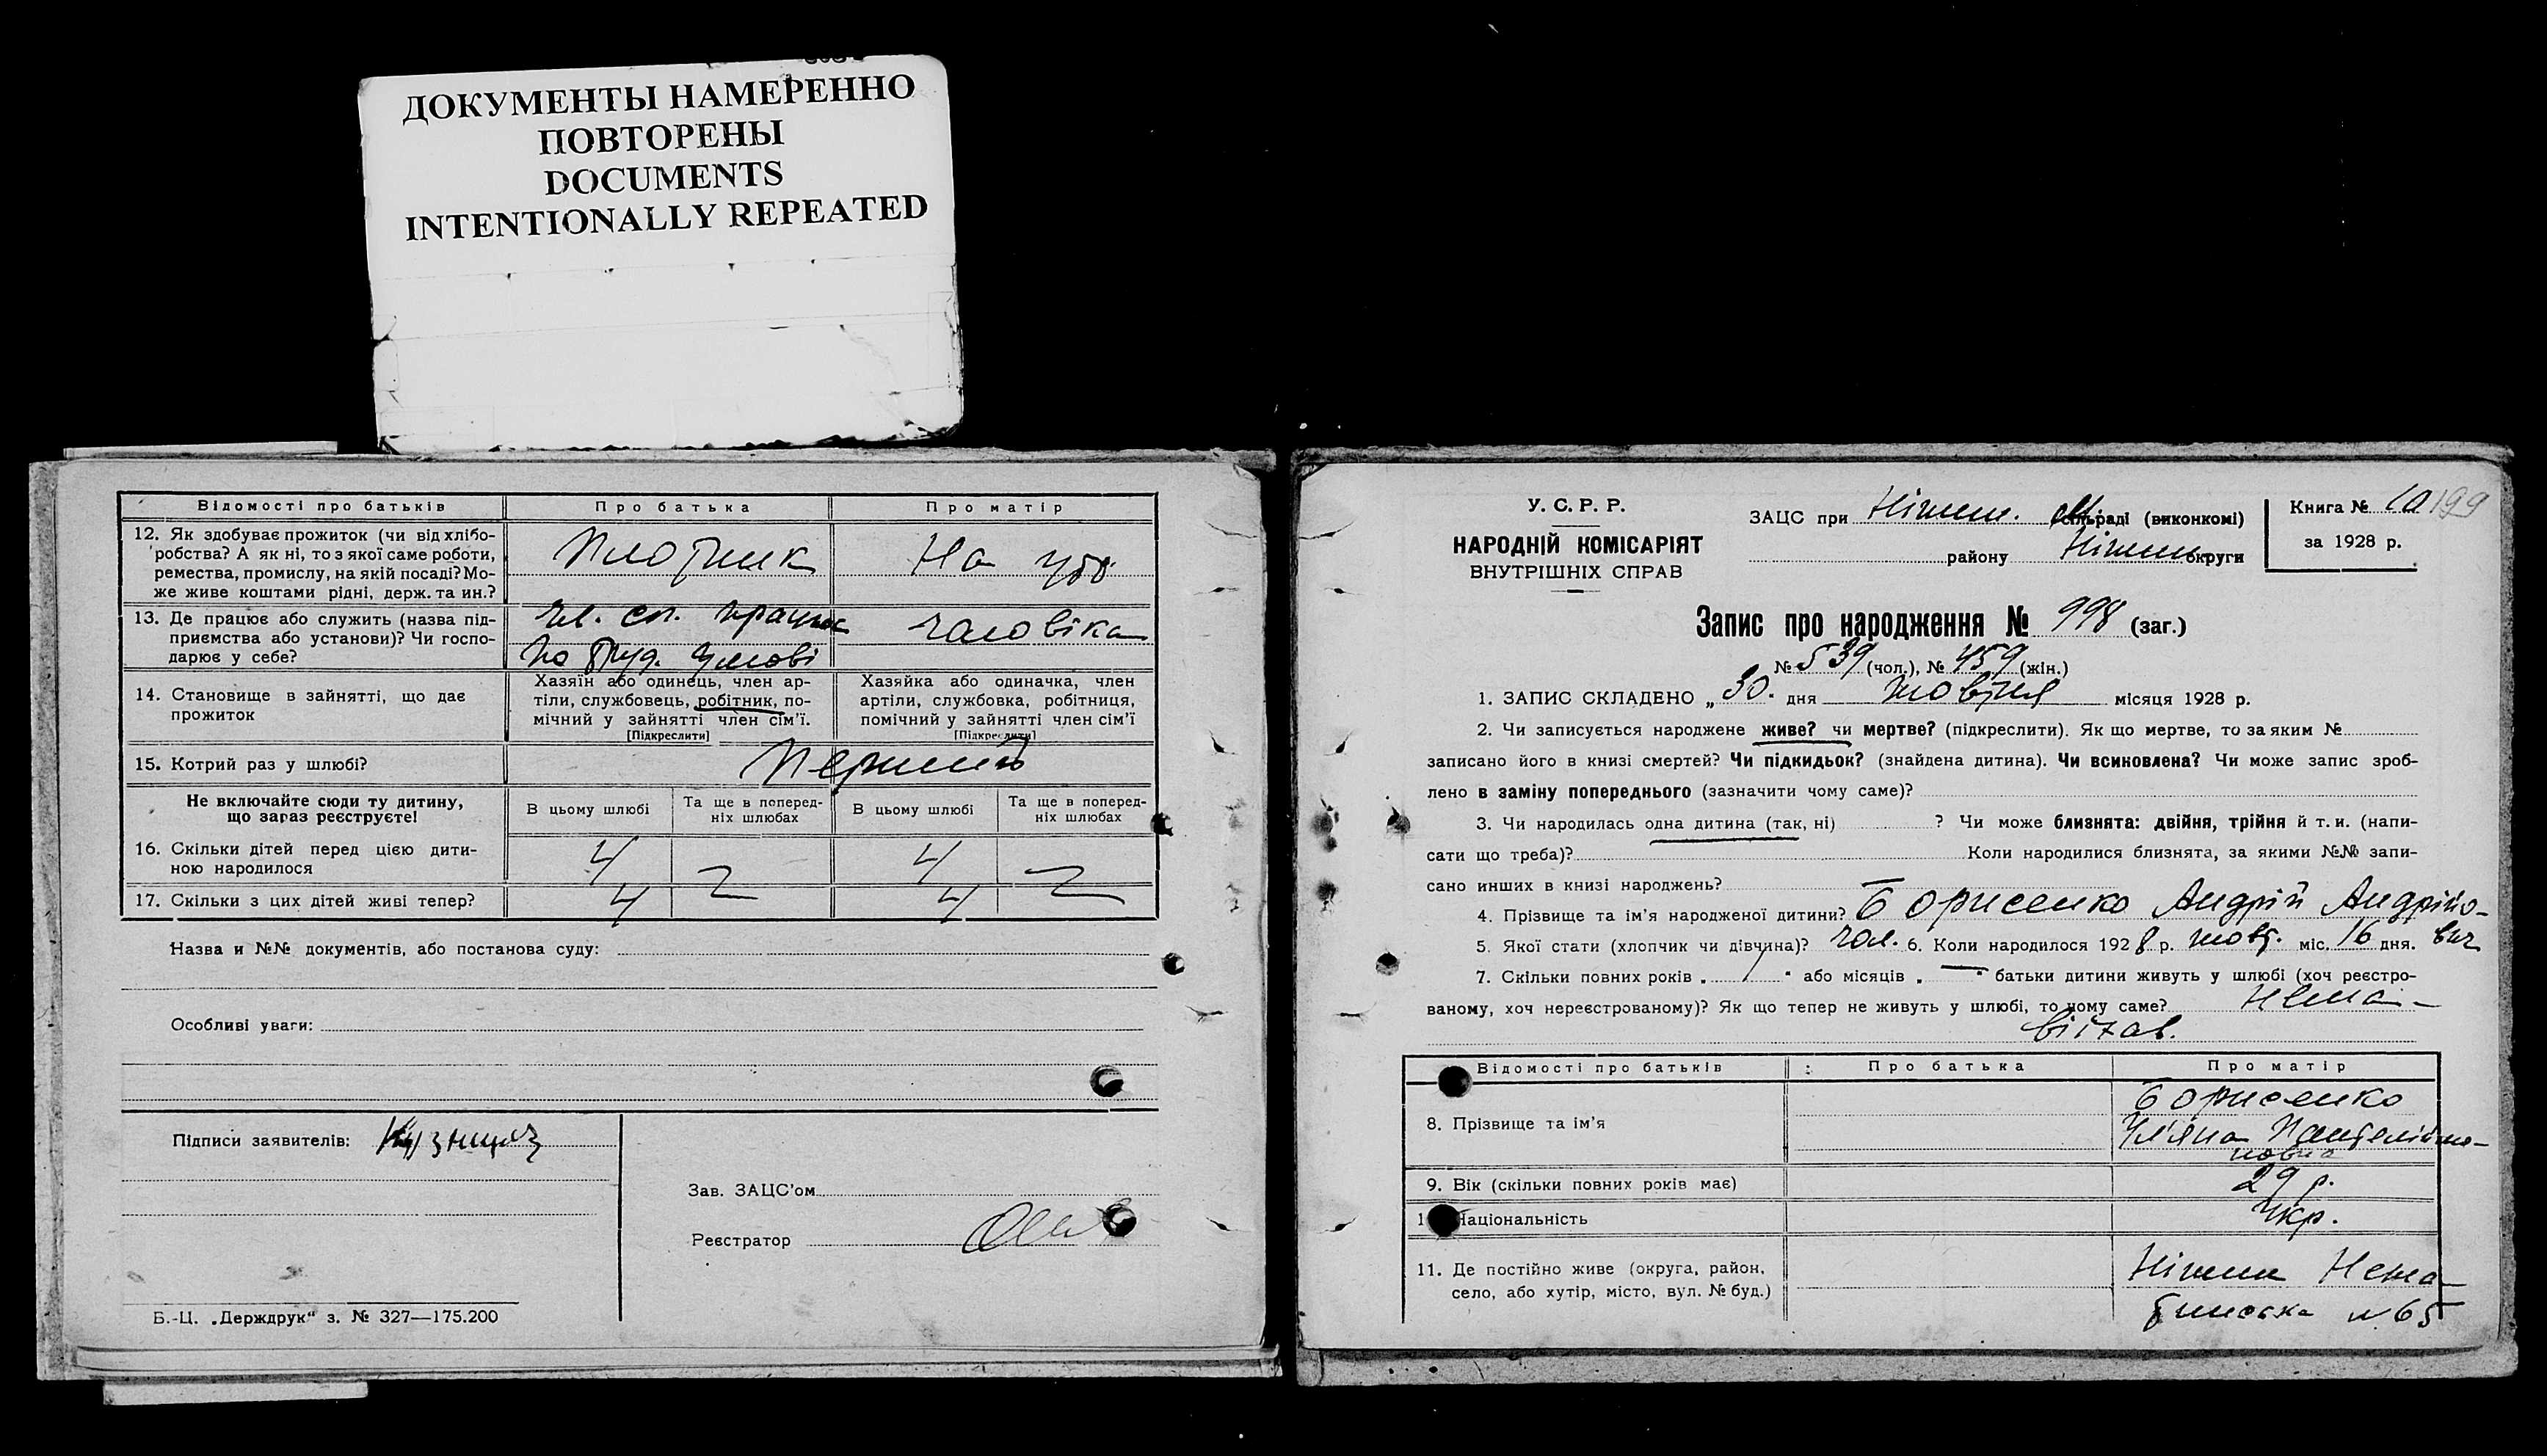 ДОКУМЕНТЫ НАМЕРЕННО
ПОВТОРЕНЫ
DOCUMENTS
INTENTIONALLY REPEATED
Відомості про батьків Про батька Про матір
12. Як здобуває прожиток (чи від хлібо-
робства? А як ні, то з якої саме роботи,
ремества, промислу, на якій посаді? Мо-
же живе коштами рідні, держ. та ин.?
Плотник На утр.
13. Де працює або служить (назва під-
приємства або установи)? Чи госпо-
дарює у себе?
чл. сп. працює чоловіка
по труд. умові
14. Становище в зайнятті, що дає
прожиток
Хазяїн або одинець, член ар-
тіли, службовець, робітник, по-
мічний у зайнятті член сім'ї.
[Підкреслити]
Хазяйка або одиначка, член
артіли, службовка, робітниця,
помічний у зайнятті член сім'ї
[Підкреслити]
15. Котрий раз у шлюбі? Перший
Не включайте сюди ту дитину,
що зараз реєструєте!
В цьому шлюбі Та ще в поперед-
ніх шлюбах В цьому шлюбі Та ще в поперед-
ніх шлюбах
16. Скільки дітей перед цією дити-
ною народилося 4 4
17. Скільки з цих дітей живі тепер? 4 4
Назва и №№ документів, або постанова суду:
Особливі уваги:
Підписи заявителів:
Зав. ЗАЦС'ом
Реєстратор
Б.-Ц. „Держдрук“ з. № 327—175.200
У. С. Р. Р.
НАРОДНІЙ КОМІСАРІЯТ
ВНУТРІШНІХ СПРАВ
ЗАЦС при Ніжин. М. сільраді (виконкомі)
району Ніжин округи
Книга № 10 199
за 1928 р.
Запис про народження № 998 (заг.)
№ 539 (чол.), № 459 (жін.)
1. ЗАПИС СКЛАДЕНО „30. дня жовтня місяця 1928 р.
2. Чи записується народжене живе? чи мертве? (підкреслити). Як що мертве, то за яким №
записано його в книзі смертей? Чи підкидьок? (знайдена дитина). Чи всиновлена? Чи може запис зроб-
лено в заміну попереднього (зазначити чому саме)?
3. Чи народилась одна дитина (так, ні) ? Чи може близнята: двійня, трійня й т. и. (напи-
сати що треба)? Коли народилися близнята, за якими №№ запи-
сано инших в книзі народжень?
4. Прізвище та ім'я народженої дитини? Борисенко Андрій Андрійо-
5. Якої стати (хлопчик чи дівчина)? чол. 6. Коли народилося 1928 р. жовт. міс. 16 дня. вич
7. Скільки повних років „ “ або місяців „ — “ батьки дитини живуть у шлюбі (хоч реєстро-
ваному, хоч нереєстрованому)? Як що тепер не живуть у шлюбі, то чому саме?
Відомості про батьків Про батька Про матір
8. Прізвище та ім'я Борисенко
Уляна Пантелеймо-
новна
9. Вік (скільки повних років має) 29 р.
Національність Укр.
11. Де постійно живе (округа, район,
село, або хутір, місто, вул. № буд.)
Ніжин
№ 65